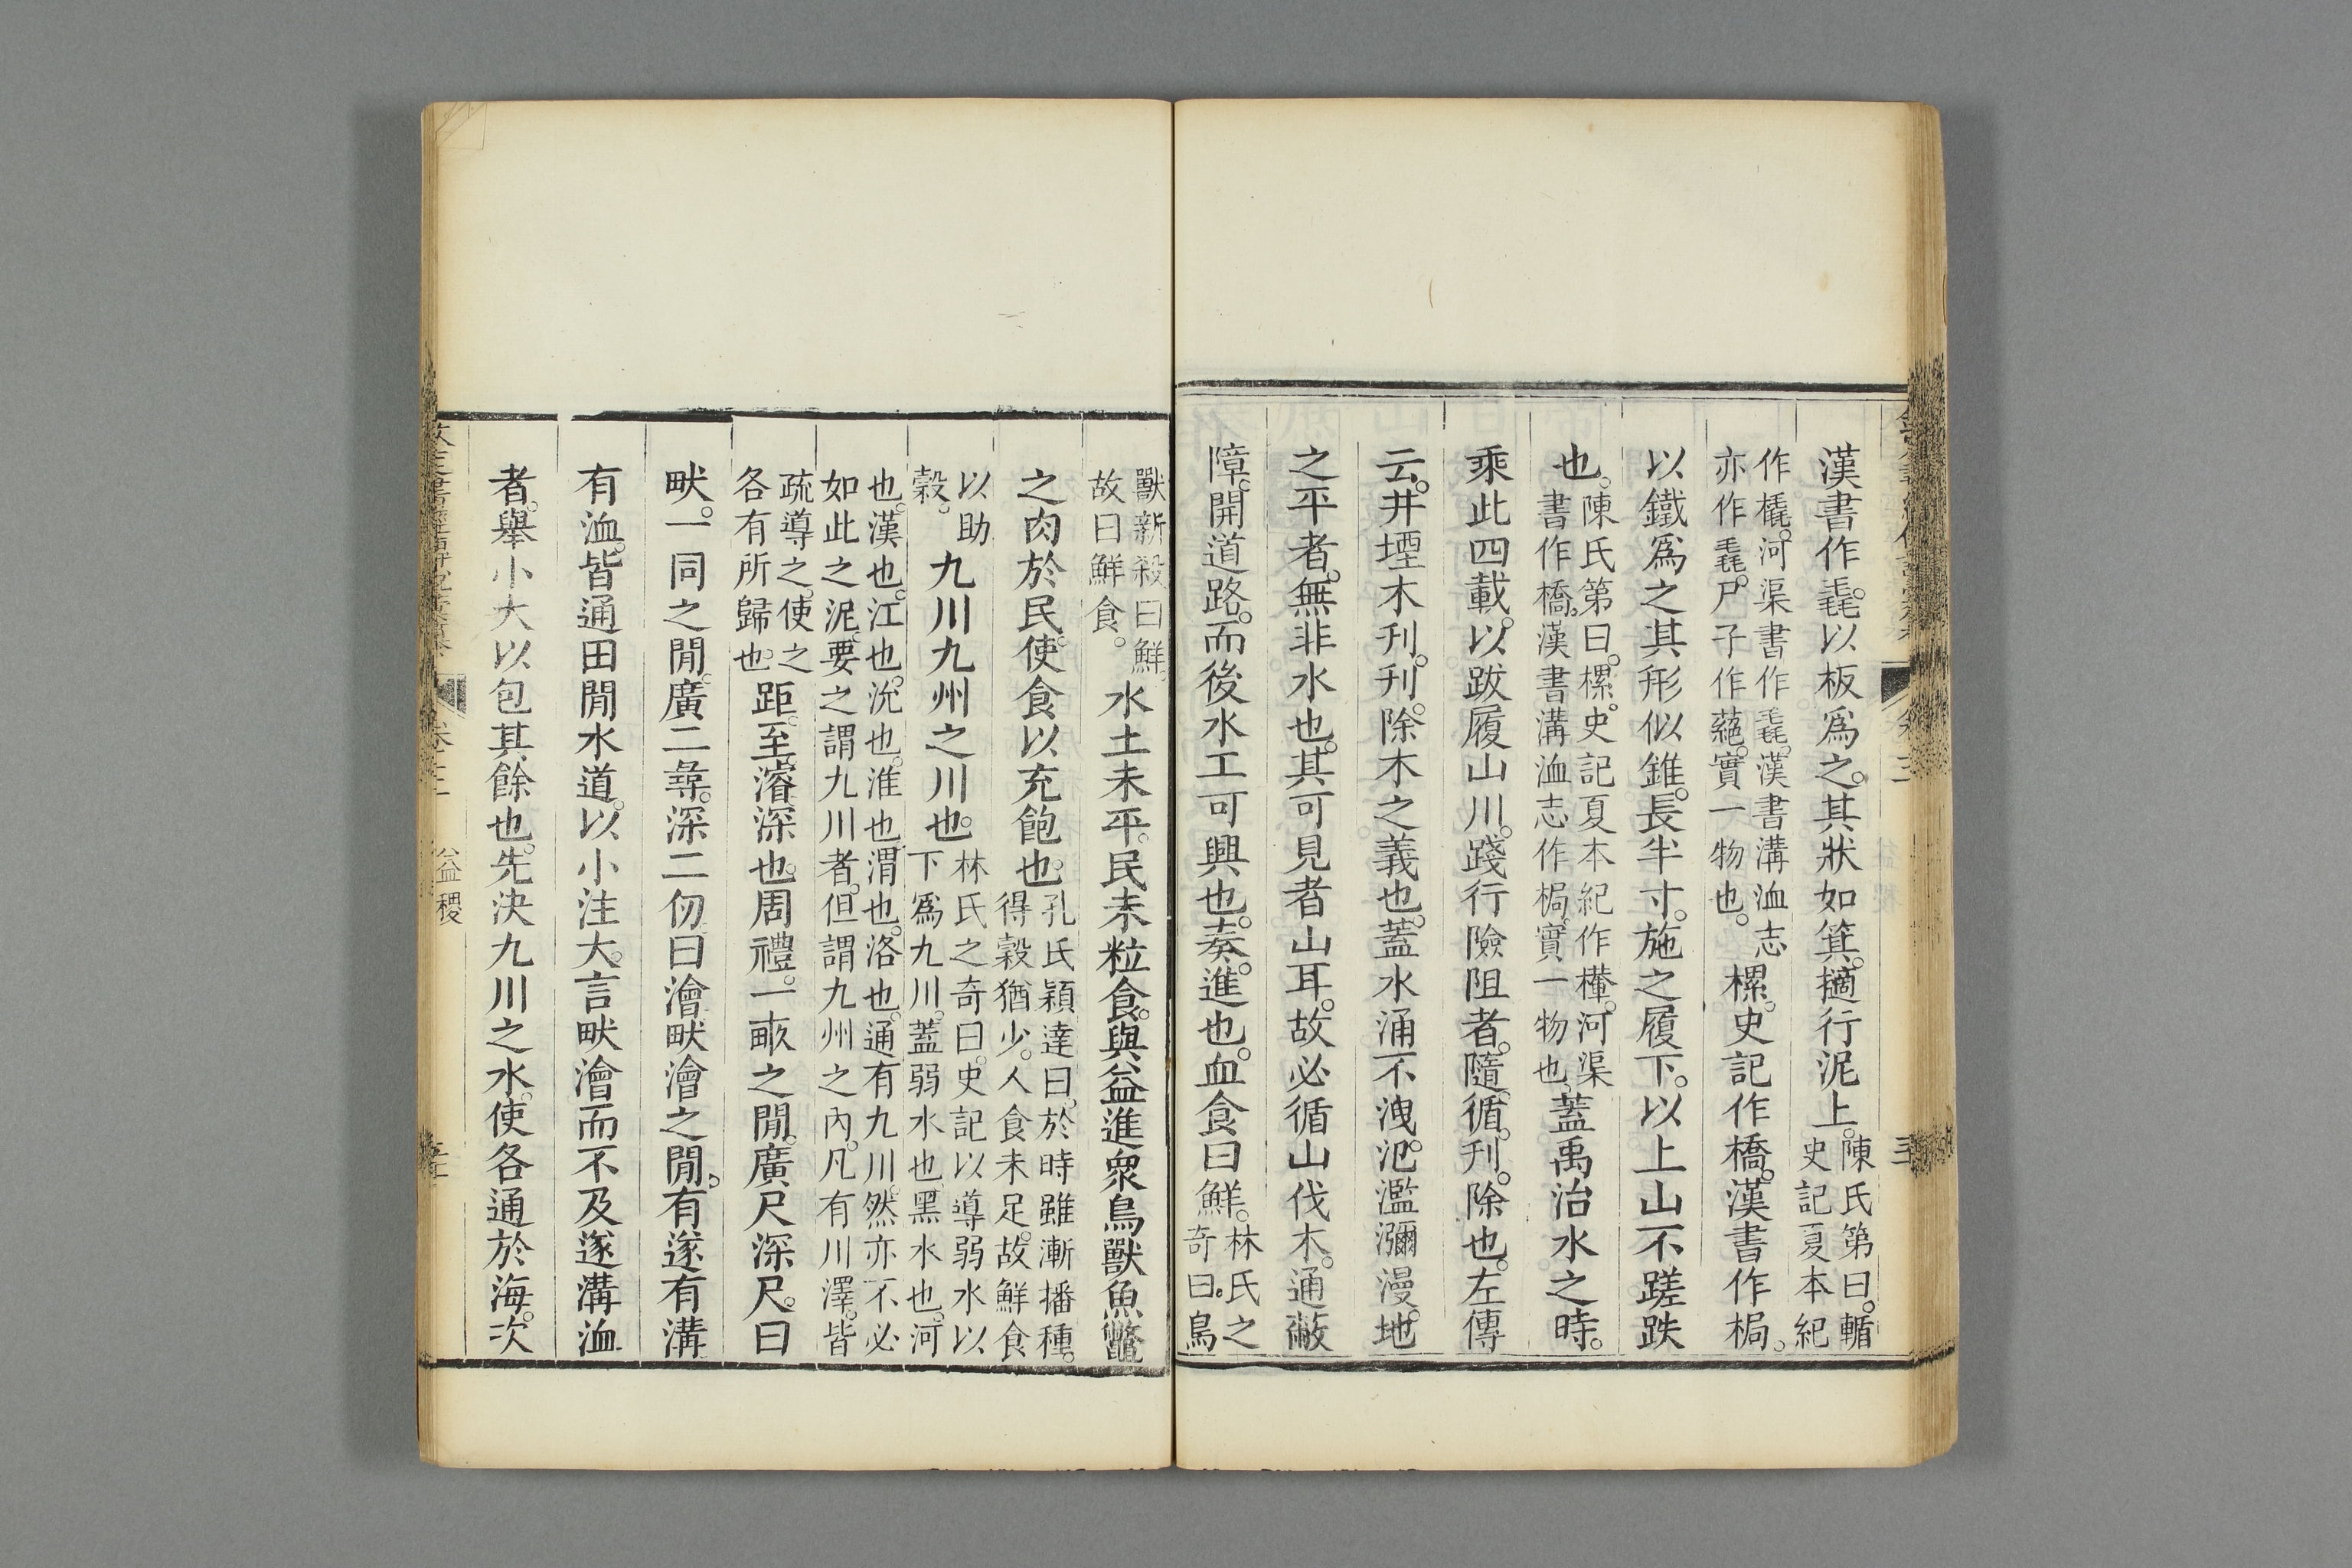 漢書作毳。以板爲之。其狀如箕。擿行泥上。陳氏第曰。輴史記夏本紀
作橇。河渠書作毳。漢書溝洫志亦作毳。尸子作蕝。實一物也。樏。史記作橋。漢書作梮。
以鐵爲之。其形似錐。長半寸。施之履下。以上山不蹉跌
也。陳氏第曰。樏。史記夏本紀作檋。河渠書作橋。漢書溝洫志作梮。實一物也。蓋禹治水之時。
乘此四載。以跋履山川。踐行險阻者。隨。循。刊。除也。左傳
云。井堙木刊。刊。除木之義也。蓋水涌不洩。氾濫瀰漫。地
之平者。無非水也。其可見者山耳。故必循山伐木。通蔽
障。開道路。而後水工可興也。奏。進也。血食曰鮮。林氏之奇曰。鳥
獸新殺曰鮮。故曰鮮食。水土未平。民未粒食。與益進衆鳥獸魚鼈
之肉於民。使食以充飽也。孔氏穎達曰。於時雖漸播種。得穀猶少。人食未足。故鮮食
以助穀。九川九州之川也。林氏之奇曰。史記以導弱水以下爲九川。蓋弱水也。黑水也。河
也。漢也。江也。沇也。淮也。渭也。洛也。通有九川。然亦不必如此之泥。要之謂九川者。但謂九州之內。凡有川澤。皆
疏導之。使之各有所歸也。距。至。濬。深也。周禮。一畝之閒。廣尺深尺。曰
畎。一同之閒。廣二尋。深二仞。曰澮。畎澮之閒。有遂有溝
有洫。皆通田閒水道。以小注大。言畎澮而不及遂溝洫
者。舉小大以包其餘也。先決九川之水。使各通於海。次
益稷